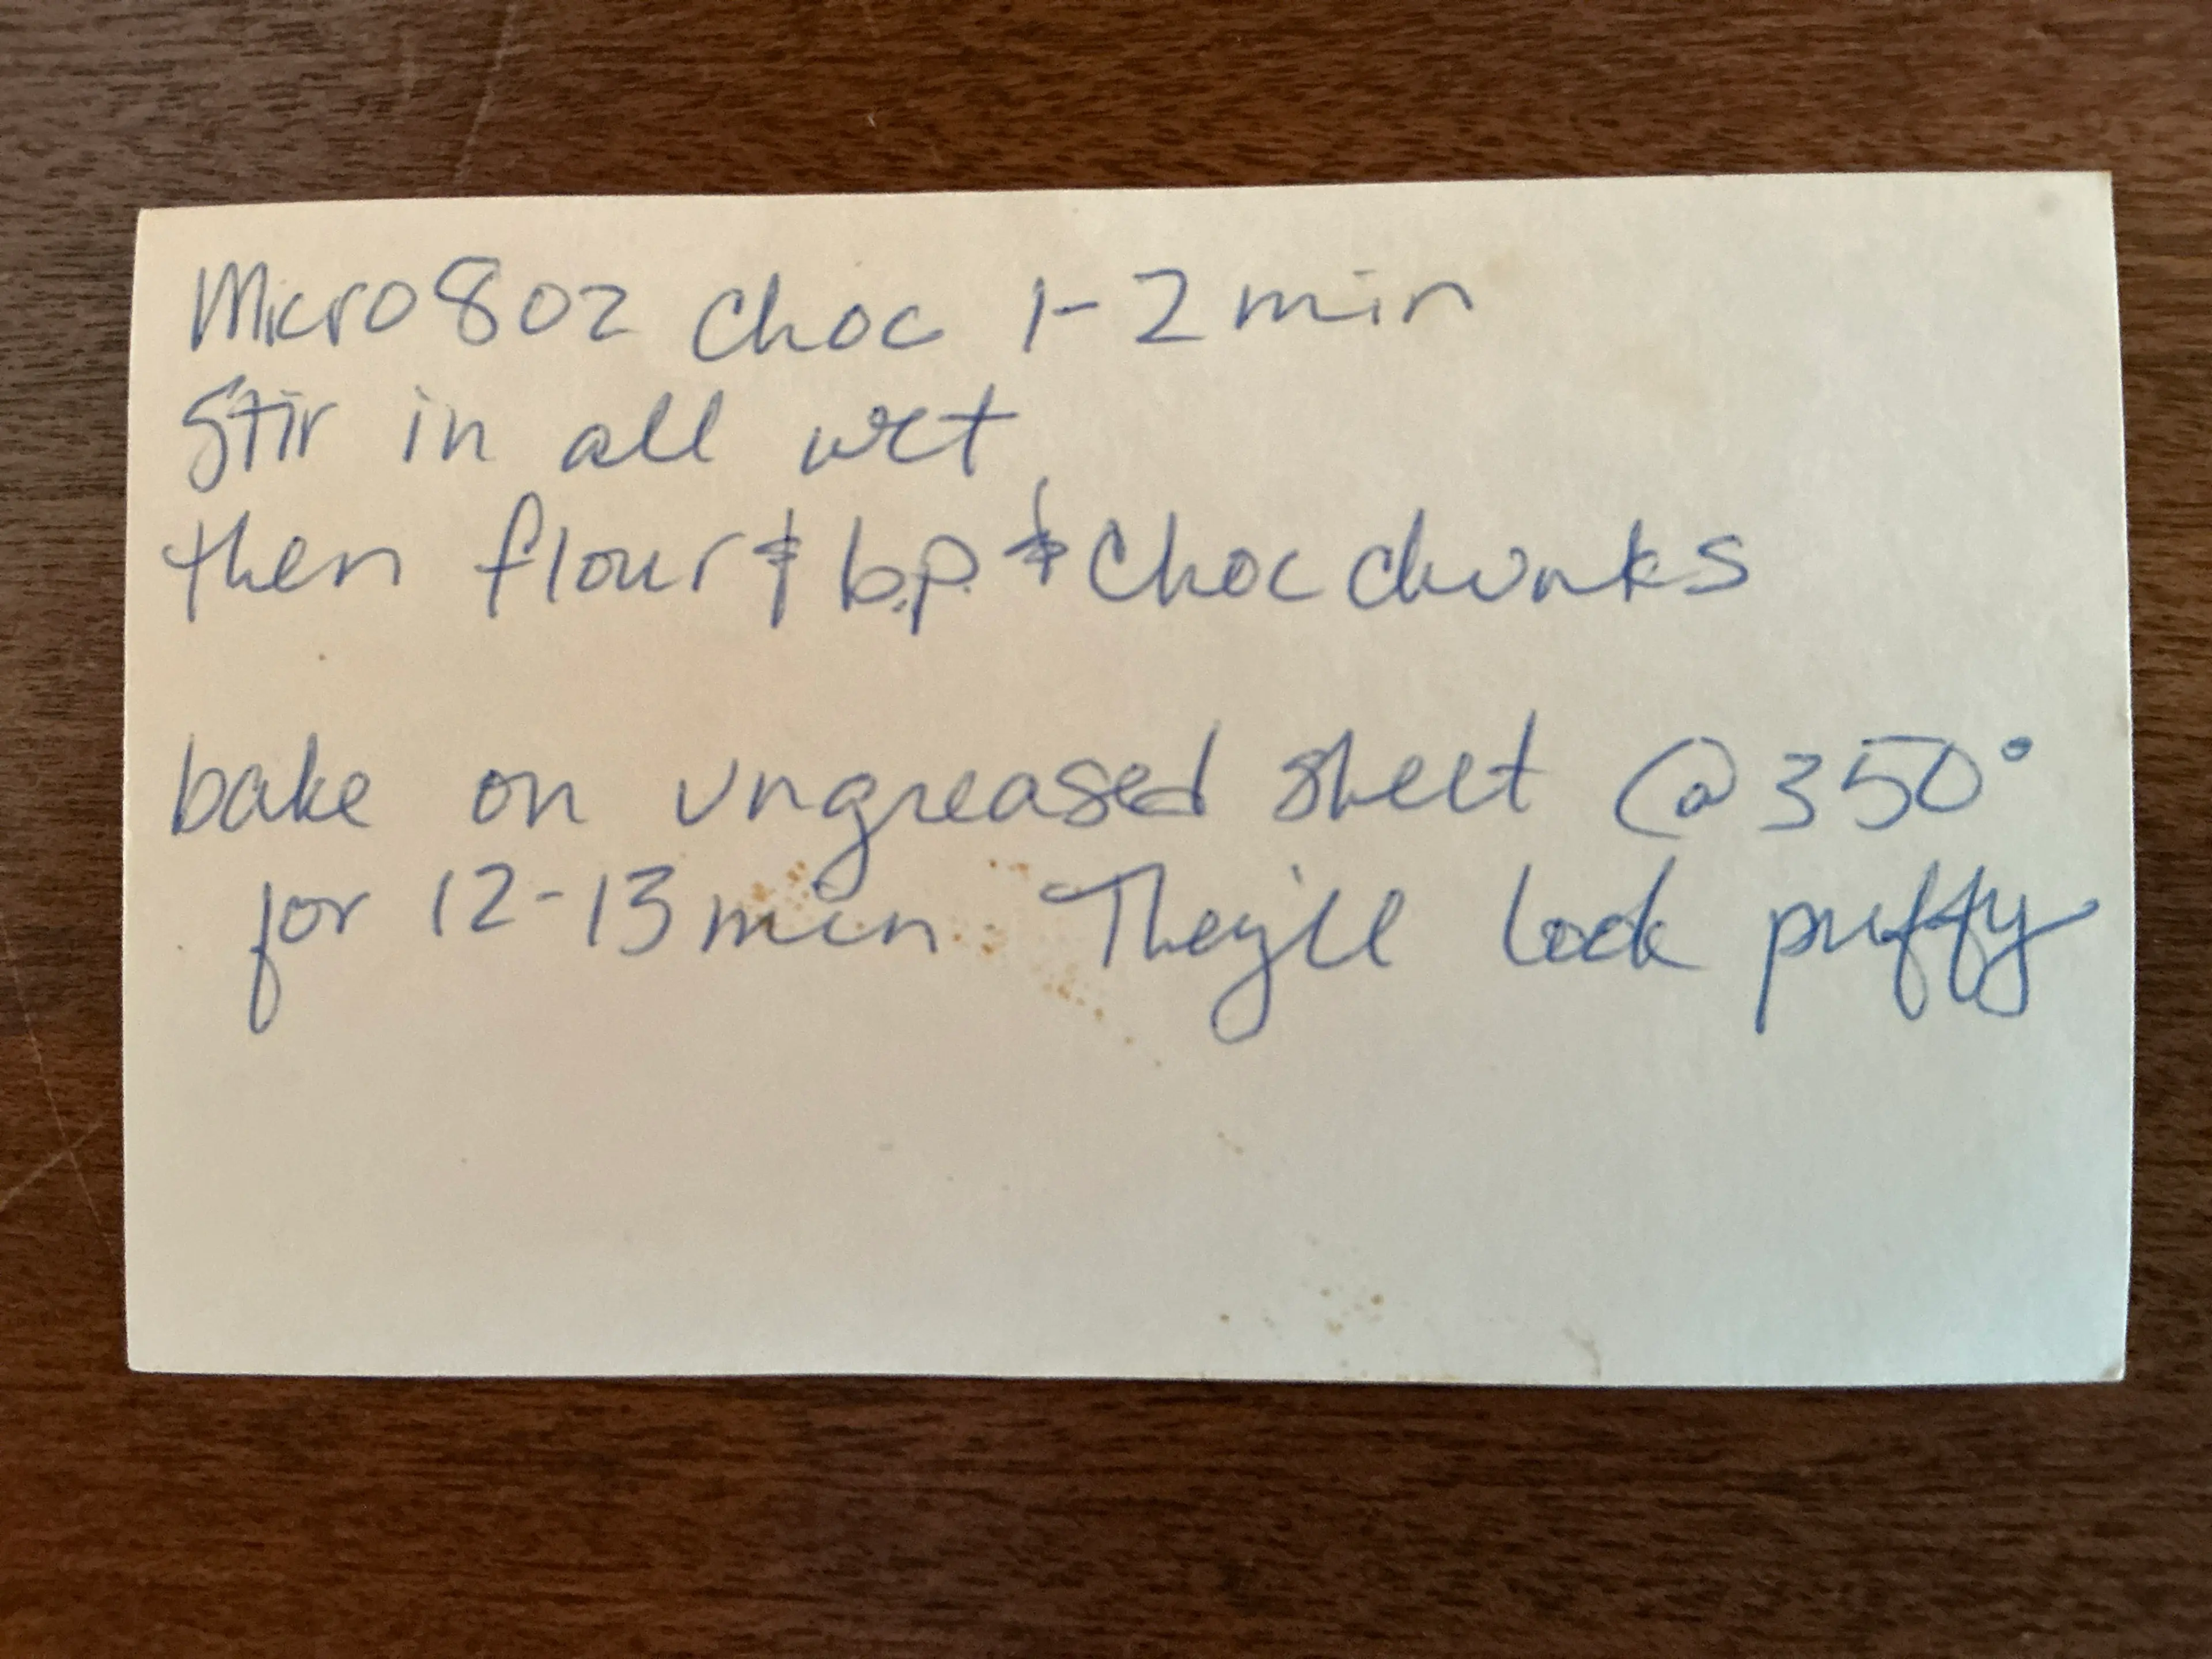 Micro 8oz choc 1-2 min
Stir in all wet
then flour & b.p. & choc chunks
bake on ungreased sheet @ 350°
for 12-13 min They'll look puffy